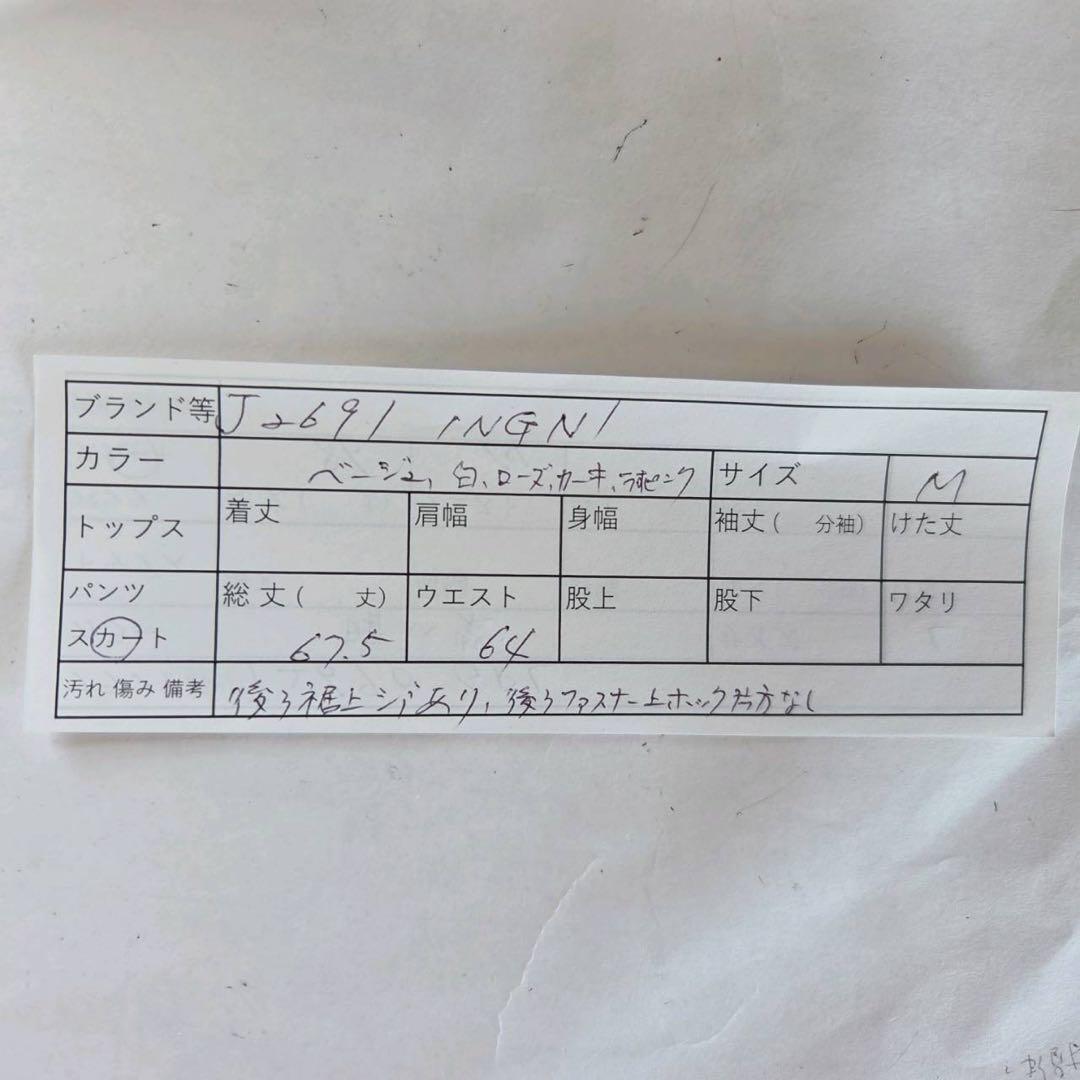 ブランド等 J2691 INGNI
カラー ベージュ、白、ローズ、カーキ、 サイズ M
トップス 着丈 肩幅 身幅 袖丈( 分袖) けた丈
パンツ 総丈( 丈) ウエスト 股上 股下 ワタリ
スカート 67.5 64
汚れ 傷み 備考 後ろ裾上シワあり、後ろファスナー上ホック片方なし